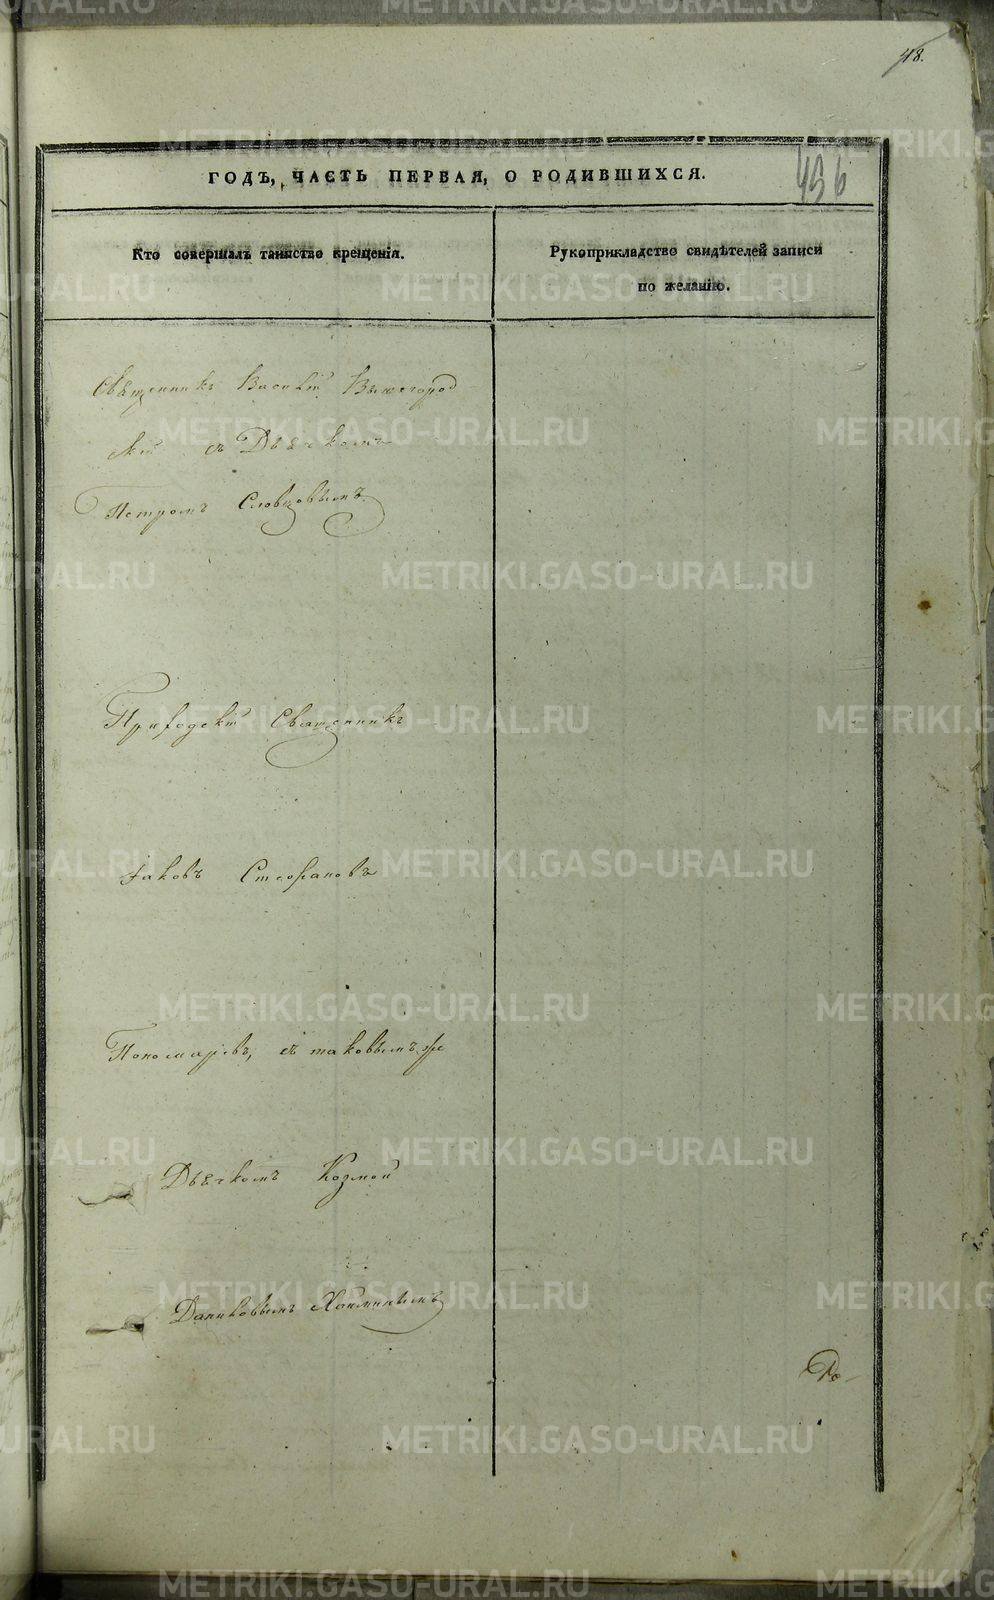 48.
ГОДЪ, ЧАСТЬ ПЕРВАЯ, О РОДИВШИХСЯ.
456
Кто совершалъ таинство крещенія.
Рукоприкладство свидѣтелей записи
по желанію.
Священникъ Василій Вышегород
скій съ Дьячкомъ
Петромъ Словцовымъ
Приходскій Священникъ
Іаковъ Стефановъ
Пономаревъ, съ таковымъ же
Дьячкомъ Козмой
Даниловымъ
Ро-
METRIKI.GASO-URAL.RU